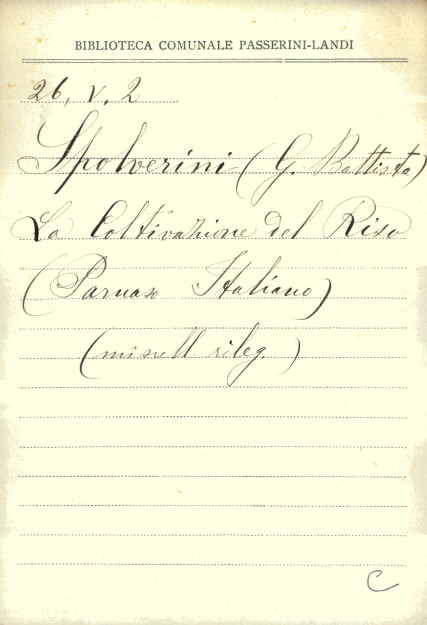 BIBLIOTECA COMUNALE PASSERINI-LANDI
26, V. 2
Spolverini (G. Battista)
La Coltivazione del Riso
(Parnaso Italiano)
(miscell. rileg.)
C